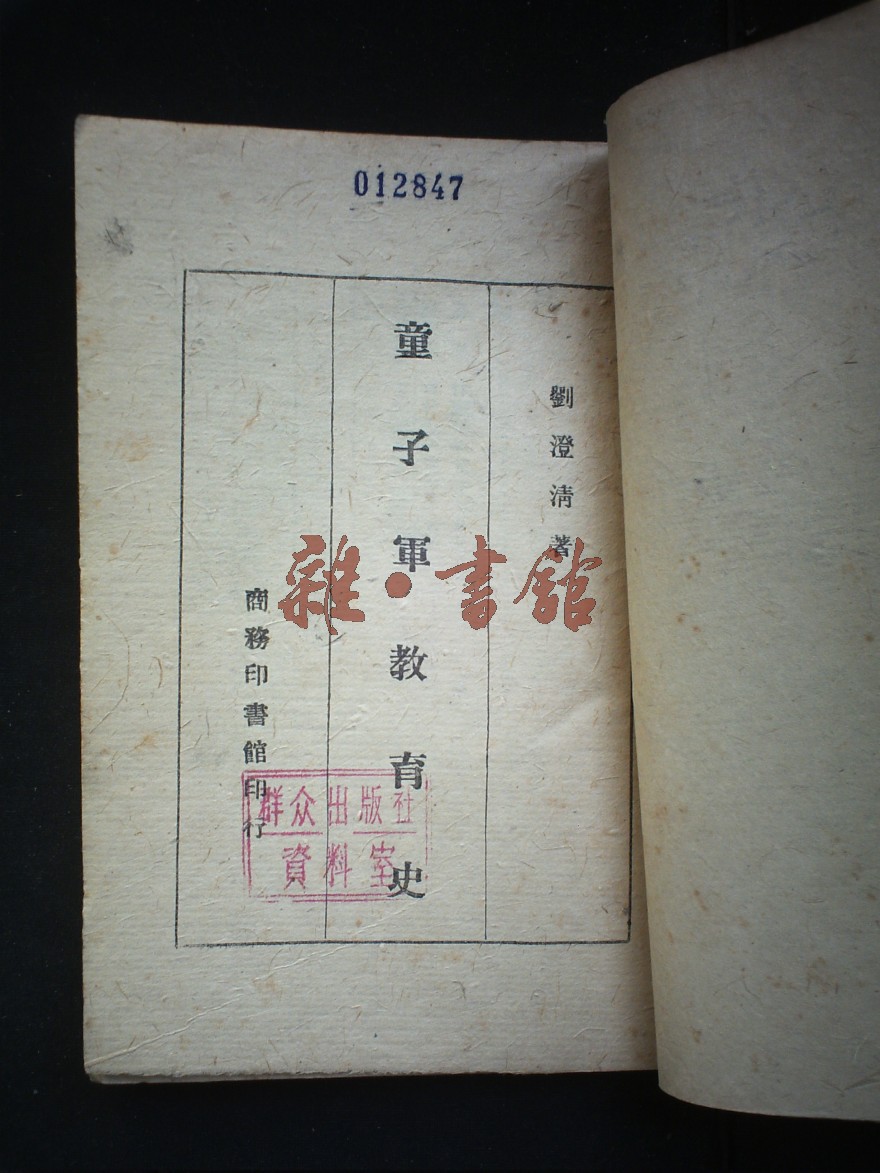 012847
劉澄淸著
童子軍教育史
商務印書館印行
群众出版社
資料室
雜·書館